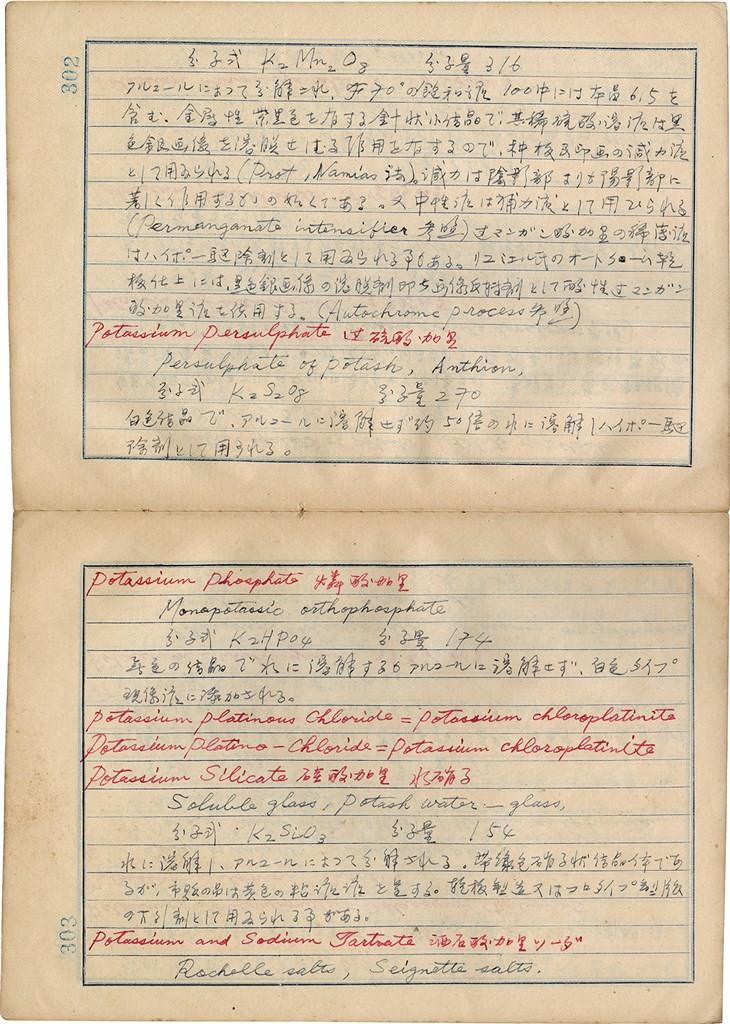 302
分子式 K2Mn2O8 分子量 316
アルコールによって分解され、 の飽和液100中には本品6.5を
含む、金属性紫黒色を有する針状小結晶で其稀硫酸溶液は黒
色銀画像を溶脱せしむる作用を有するので、種板及印画の減力液
として用ゐられる(Prof. Namias 法)。減力は陰影部よりも陽影部に
著しく作用するかの如くである。又中性液は補力液として用ひられる
(Permanganate intensifier 参照)过マンガン酸加里の稀薄液
はハイポー駆除剤として用ゐられる事もある。リュミエル氏のオートクローム乾
板仕上には、黒色銀画像の溶脱剤即ち画像反転剤として酸性过マンガン
酸加里液を使用する。(Autochrome process 参照)
Potassium Persulphate 过硫酸加里
Persulphate of potash, Anthion,
分子式 K2S2O8 分子量 270
白色結晶で、アルコールに溶解せず約50倍の水に溶解しハイポー駆
除剤として用ゐられる。
Potassium Phosphate 燐酸加里
Monopotassic orthophosphate
分子式 K2HPO4 分子量 174
無色の結晶で水に溶解するもアルコールに溶解せず、白色タイプ
現像液に添加される。
Potassium Platinous Chloride = Potassium chloroplatinite
Potassium Platino-Chloride = Potassium chloroplatinite
Potassium Silicate 硅酸加里 水硝子
Soluble glass, Potash water-glass,
分子式 K2SiO3 分子量 154
水に溶解し、アルコールによって分解される。帯緑色硝子状結晶体であ
るが、市販の品は黄色の粘液を呈する。乾板製造又はコロタイプ製版
の下引剤として用ゐられる事がある。
Potassium and Sodium Tartrate 酒石酸加里ソーダ
Rochelle salts, Seignette salts.
303